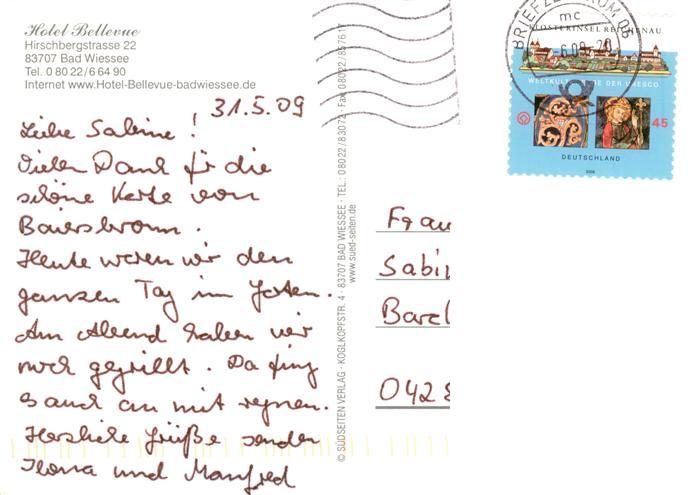 Hotel Bellevue
Hirschbergstrasse 22
83707 Bad Wiessee
Tel. 0 80 22/6 64 90
Internet www.Hotel-Bellevue-badwiessee.de
31.5.09
Liebe Sabine!
Vielen Dank für die
schöne Karte von
Baiersbronn.
Heute waren wir den
ganzen Tag im Garten.
Am Abend haben wir
noch gegrillt. Da fing
es auch an mit regnen.
Herzliche Grüße senden
Ilona und Manfred
© SÜDSEITEN VERLAG · KOGLKOPFSTR. 4 · 83707 BAD WIESSEE · TEL.: 08022/83072 · Fax 08022/857617
www.sued-seiten.de
BRIEFZENTRUM 06
mc
KLOSTERINSEL REICHENAU
WELTKULTURERBE DER UNESCO
45
DEUTSCHLAND
2008
Frau
Sabin
Bar
042